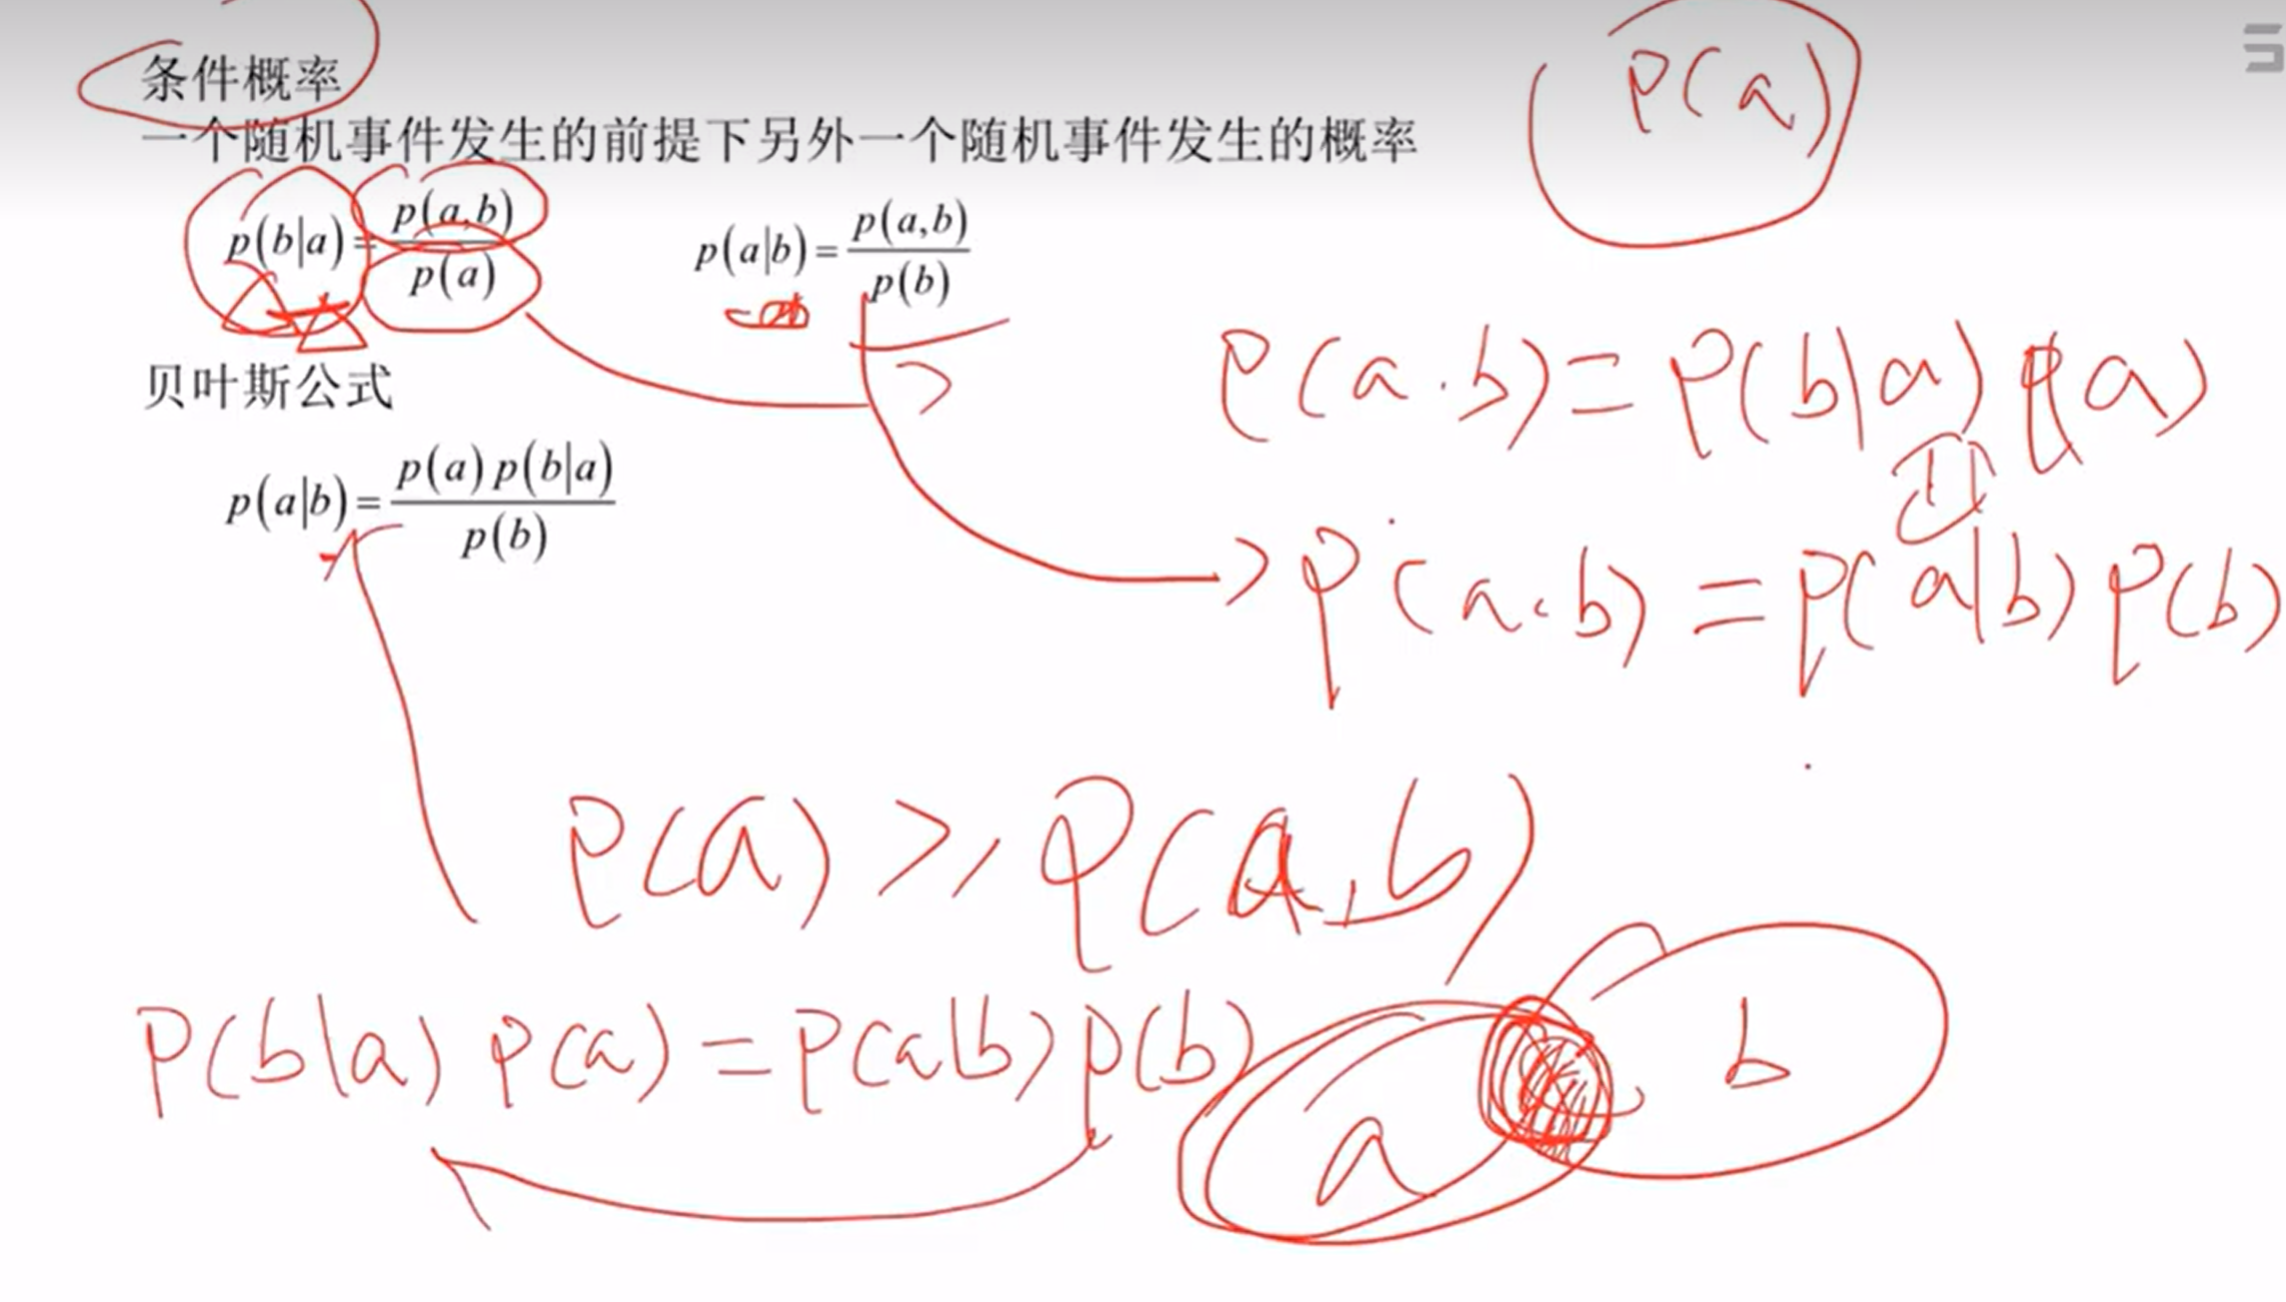 条件概率
P(a)
一个随机事件发生的前提下另外一个随机事件发生的概率
p(b|a)=p(a,b)/p(a)
p(a|b)=p(a,b)/p(b)
P(a.b)=P(b|a)P(a)
贝叶斯公式
p(a|b)=p(a)p(b|a)/p(b)
P(a.b)=P(a|b)P(b)
P(a)≥P(a,b)
P(b|a)P(a)=P(a|b)P(b)
a
b